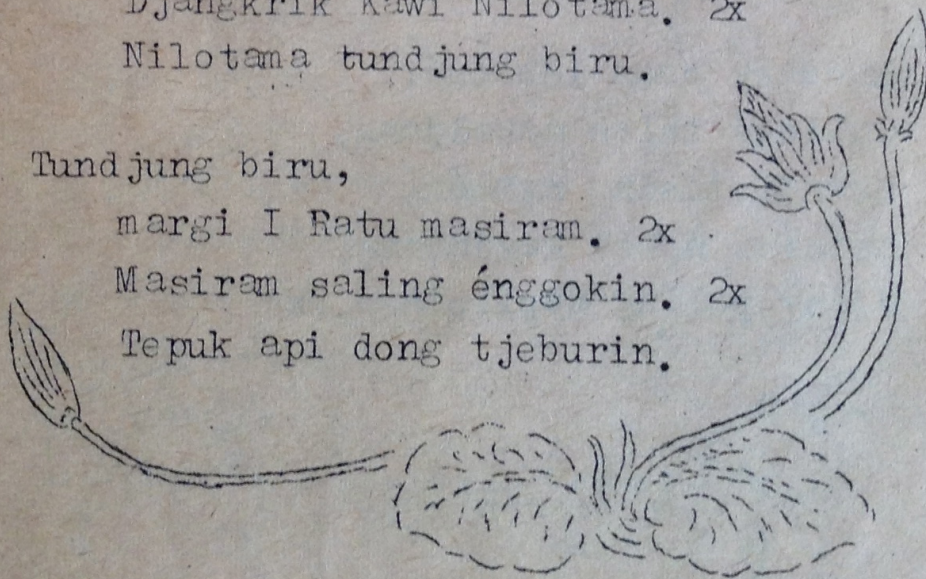 Djangkrik Kawi Nilotama. 2x
Nilotama tundjung biru.
Tundjung biru,
margi I Ratu masiram. 2x
Masiram saling énggokin. 2x
Tepuk api dong tjeburin.